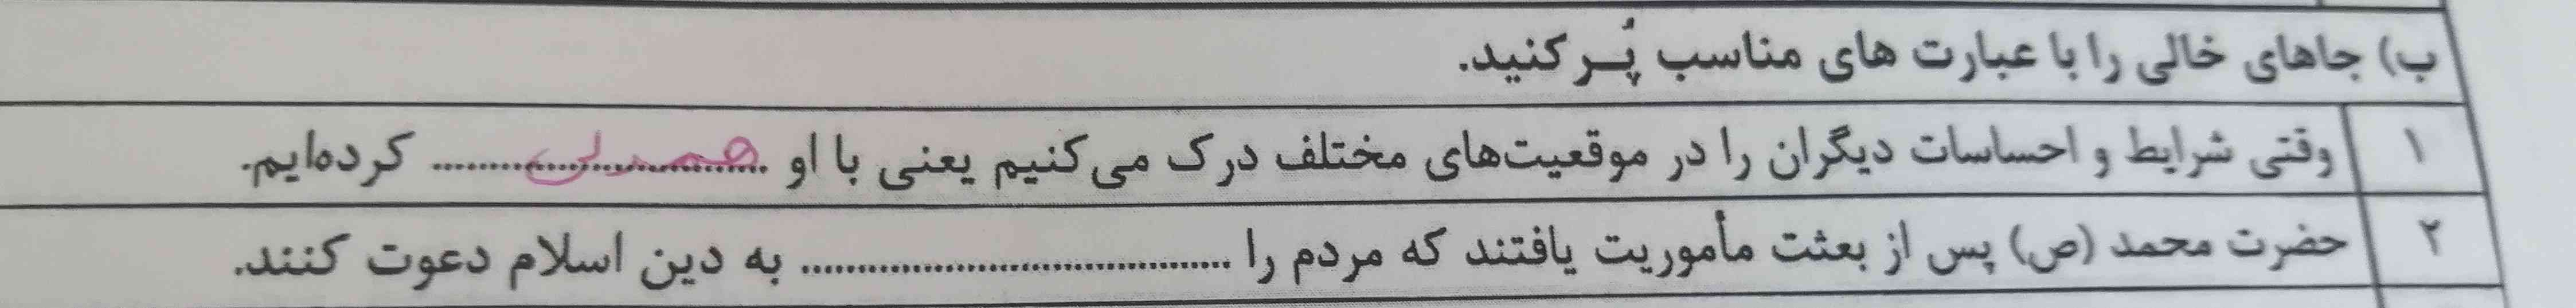 ب) جاهای خالی را با عبارت های مناسب پُر کنید.
۱ وقتی شرایط و احساسات دیگران را در موقعیت‌های مختلف درک می‌کنیم یعنی با او ....همدلی.... کرده‌ایم.
۲ حضرت محمد (ص) پس از بعثت مأموریت یافتند که مردم را ........................................ به دین اسلام دعوت کنند.